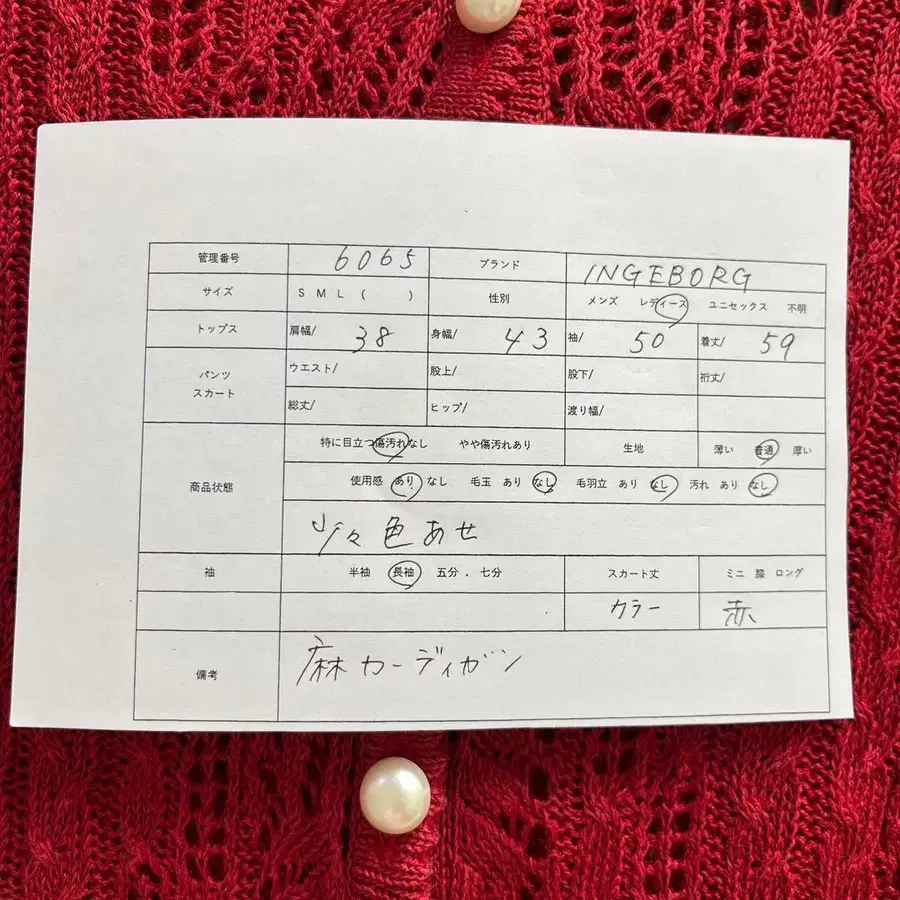 管理番号 6065 ブランド INGEBORG
サイズ S M L ( ) 性別 メンズ レディース ユニセックス 不明
トップス 肩幅/ 38 身幅/ 43 袖/ 50 着丈/ 59
パンツ ウエスト/ 股上/ 股下/ 裄丈/
スカート 総丈/ ヒップ/ 渡り幅/
特に目立つ傷汚れなし やや傷汚れあり 生地 薄い 普通 厚い
商品状態 使用感 あり なし 毛玉 あり なし 毛羽立 あり なし 汚れ あり なし
少々色あせ
袖 半袖 長袖 五分．七分 スカート丈 ミニ 膝 ロング
カラー 赤
備考 麻カーディガン